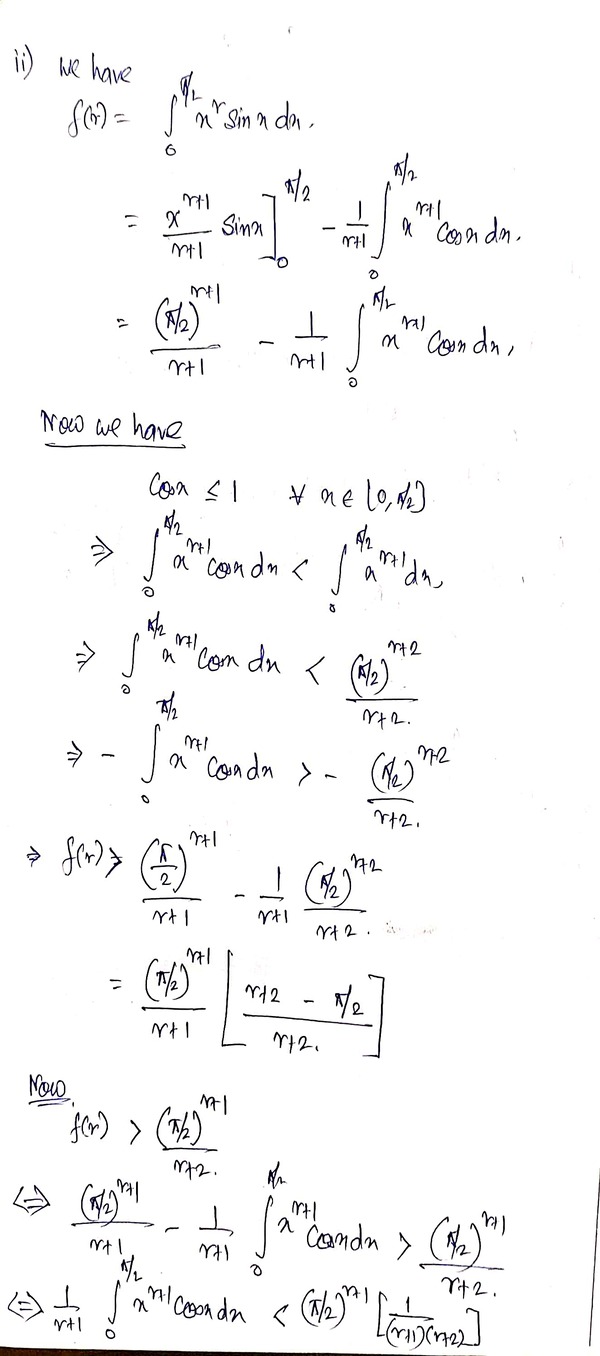 ii) we have
f(r) = ∫₀^{π/2} x^r sin x dx.
= x^{r+1}/(r+1) sin x]₀^{π/2} - 1/(r+1) ∫₀^{π/2} x^{r+1} cos x dx.
= (π/2)^{r+1}/(r+1) - 1/(r+1) ∫₀^{π/2} x^{r+1} cos x dx,
Now we have
cos x ≤ 1 ∀ x ∈ [0, π/2]
⇒ ∫₀^{π/2} x^{r+1} cos x dx < ∫₀^{π/2} x^{r+1} dx,
⇒ ∫₀^{π/2} x^{r+1} cos x dx < (π/2)^{r+2}/(r+2).
⇒ - ∫₀^{π/2} x^{r+1} cos x dx > - (π/2)^{r+2}/(r+2).
⇒ f(r) > (π/2)^{r+1}/(r+1) - 1/(r+1) (π/2)^{r+2}/(r+2).
= (π/2)^{r+1}/(r+1) [(r+2 - π/2)/(r+2).]
Now,
f(r) > (π/2)^{r+1}/(r+2).
⇔ (π/2)^{r+1}/(r+1) - 1/(r+1) ∫₀^{π/2} x^{r+1} cos x dx > (π/2)^{r+1}/(r+2).
⇔ 1/(r+1) ∫₀^{π/2} x^{r+1} cos x dx < (π/2)^{r+1} [1/((r+1)(r+2))]